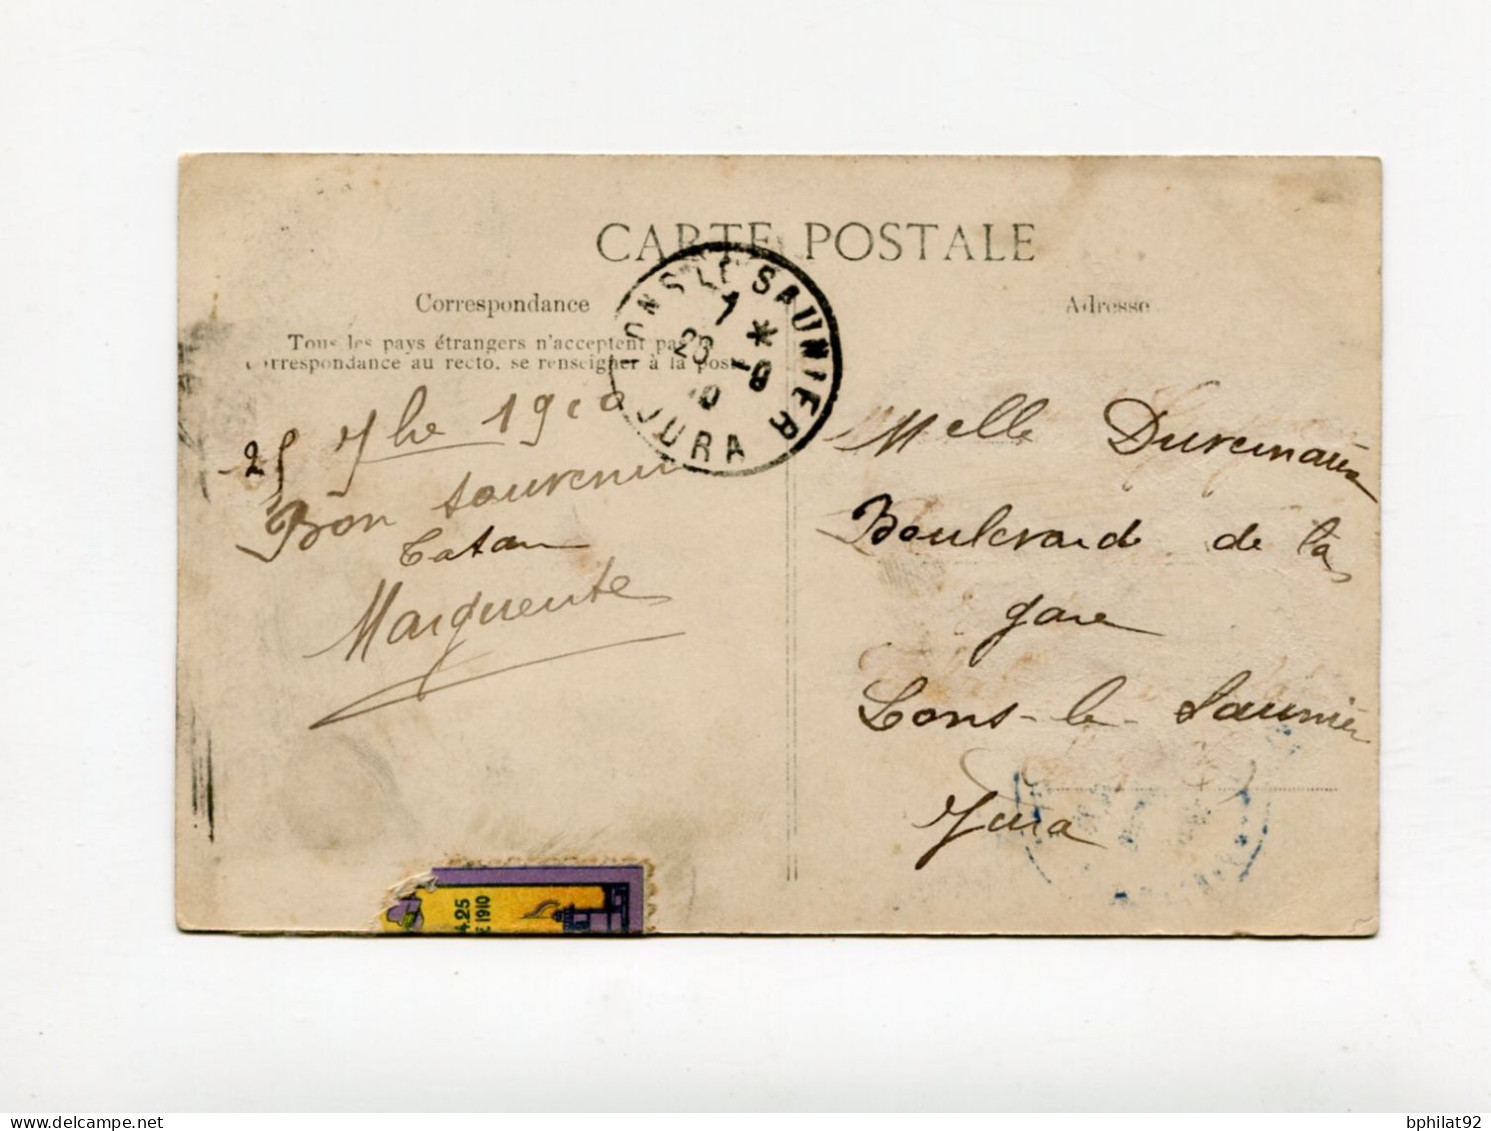 CARTE POSTALE
Correspondance
Adresse
Tous les pays étrangers n'acceptent pas
correspondance au recto, se renseigner à la poste
LONS LE SAUNIER
7 *
26 - 9
10
JURA
25 7bre 1910
Bon souvenir
Tatan
Marguerite
Melle
Boulevard de la
gare
Lons-le-Saunier
Jura
4.25
E 1910
bphilat92